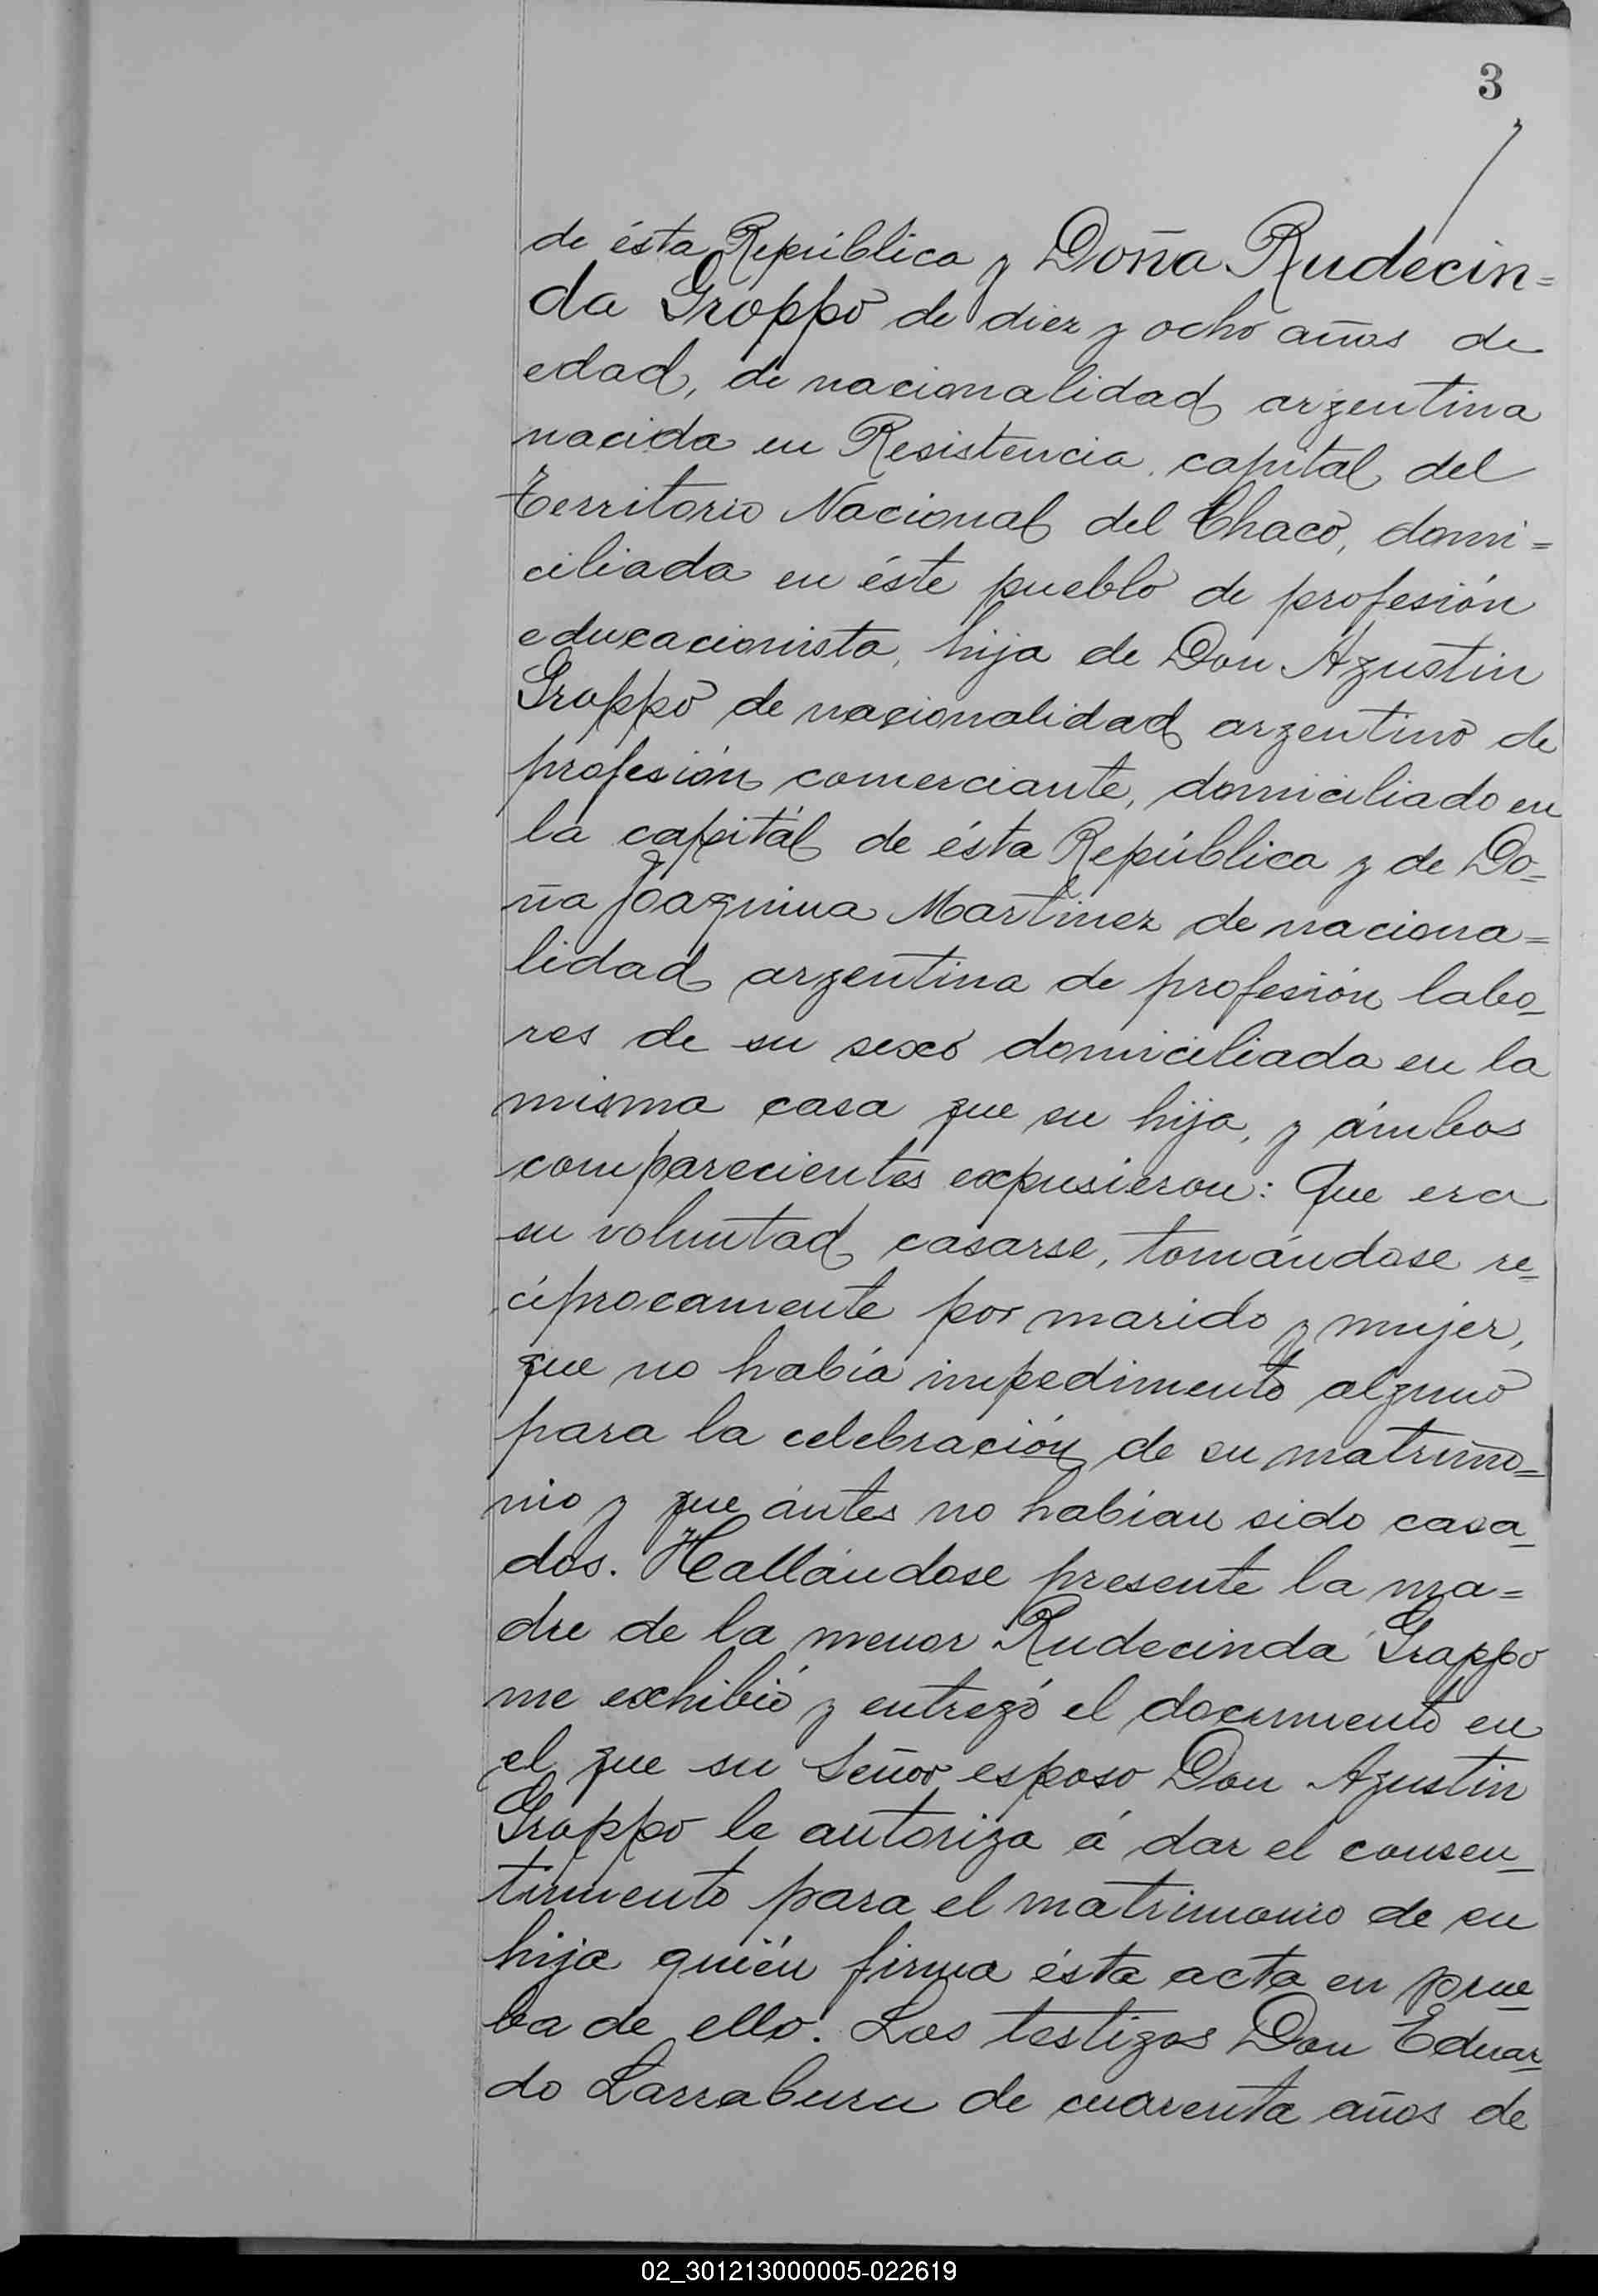 3
de ésta República y Doña Rudecin=
da Groppo de diez y ocho años de
edad, de nacionalidad argentina
nacida en Resistencia, capital del
Territorio Nacional del Chaco, domi=
ciliada en éste pueblo de profesión
educacionista, hija de Don Agustin
Groppo de nacionalidad argentino de
profesión comerciante, domiciliado en
la capitál de ésta República y de Do=
ña Joaquina Martinez de naciona=
lidad argentina de profesión labo_
res de su sexo domiciliada en la
misma casa que su hija, y ámbos
comparecientes expusieron: Que era
su voluntad casarse, tomándose re_
cíprocamente por marido y mujer,
que no había impedimento alguno
para la celebración de su matrimo=
nio y que ántes no habían sido casa_
dos. Hallándose presente la ma=
dre de la menor Rudecinda Groppo
me exhibió y entregó el documento en
el que su Señor esposo Don Agustin
Groppo le autoriza á dar el consen_
timiento para el matrimonio de su
hija quién firma ésta acta en prue_
ba de ello. Los testigos Don Eduar_
do Larraburu de cuarenta años de
02_301213000005-022619